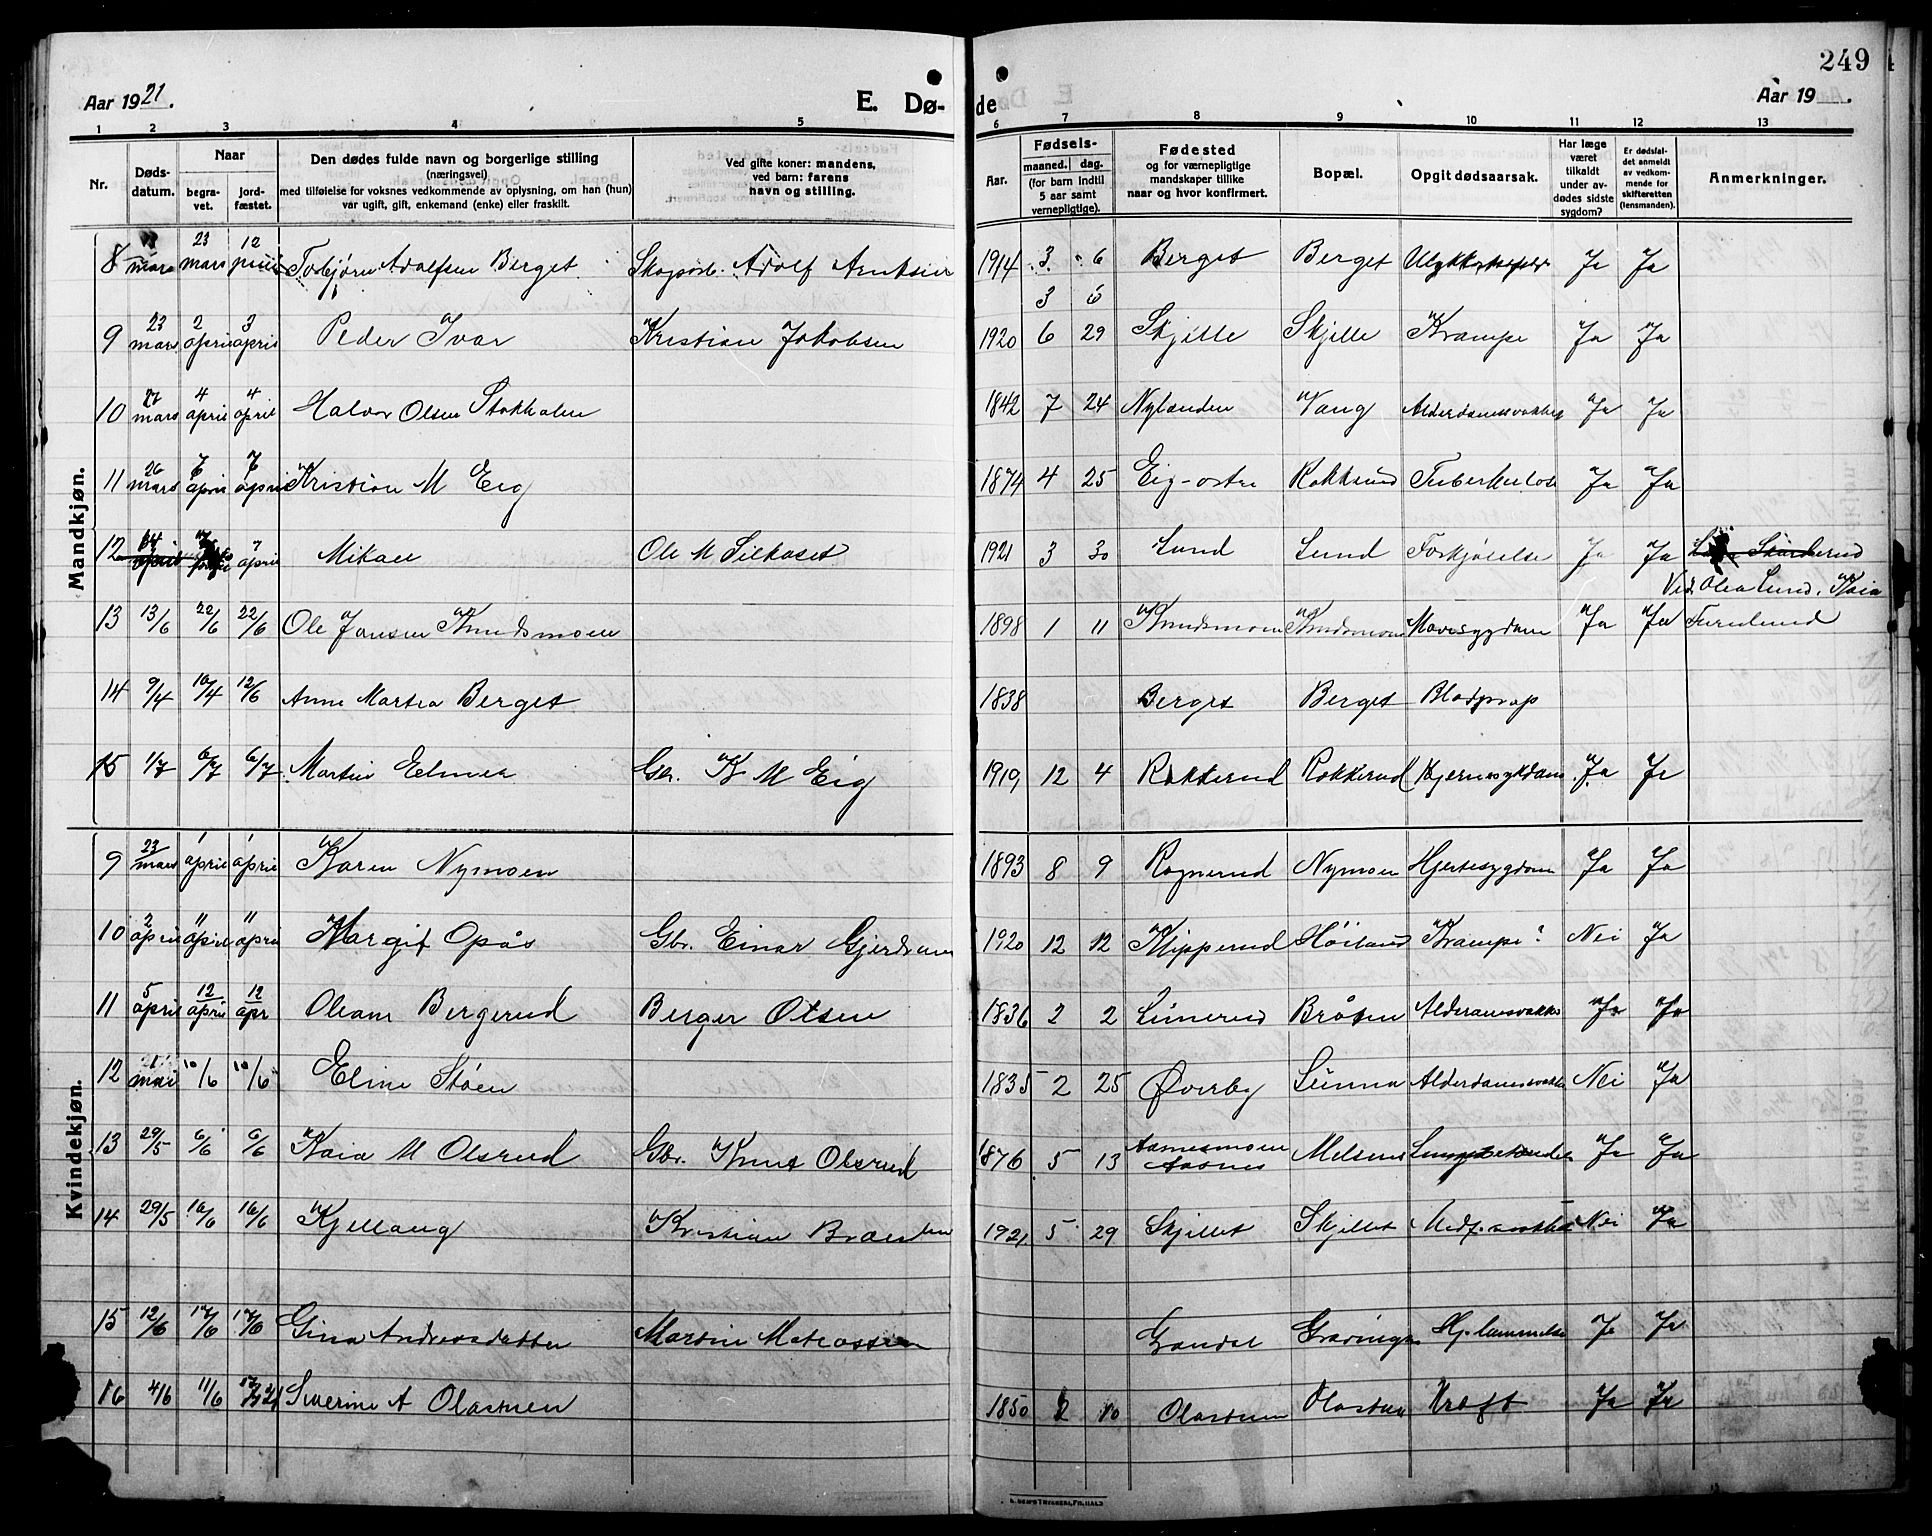 249
Aar 1921. E. Dø- de Aar 19 .
1 2 3 4 5 6 7 8 9 10 11 12 13
Nr. Dødsdatum. Naar begravet. jordfæstet. Den dødes fulde navn og borgerlige stilling (næringsvei) med tilføielse for voksnes vedkommende av oplysning, om han (hun) var ugift, gift, enkemand (enke) eller fraskilt. Ved gifte koner: mandens, ved barn: farens navn og stilling. Aar. Fødsels- maaned. dag. (for barn indtil 5 aar samt vernepligtige). Fødested og for værnepligtige mandskaper tillike naar og hvor konfirmert. Bopæl. Opgit dødsaarsak. Har læge været tilkaldt under avdødes sidste sygdom? Er dødsfaldet anmeldt av vedkommende for skifteretten (lensmanden). Anmerkninger.
Mandkjøn.
8 mars 23 mars 12 juni Torbjørn Adolfsen Berget Adolf Arntsen 1914 3 6 Berget Berget Ja Ja
3 6
9 23 mars 2 april 3 april Peder Ivar Kristian Jakobsen 1920 6 29 Skjille Skjille Krampe Ja Ja
10 27 mars 4 april 4 april Halvor Olsen Stokholm 1842 7 24 Nylanden Vang Alderdomssvakhet Ja Ja
11 26 mars 7 april 7 april Kristian M Eig 1874 4 25 Eig-østre Rokkerud Tuberkulose Ja Ja
12 april 7 april Mikael Ole M Silkeset 1921 3 30 Lund Lund Forkjølelse Ja Ja
Ved Olea Lund, Kaia
13 13/6 22/6 22/6 Ole Jansen Knudsmoen 1898 1 11 Knudsmoen Knudsmoen Mavesygdom Ja Ja Furulund
14 9/4 10/4 12/6 Anne Martea Berget 1838 Berget Berget Blodprop
15 1/7 6/7 6/7 Martin Elmer Gbr. K M Eig 1919 12 4 Rokkerud Rokkerud Hjernesykdom Ja Ja
Kvindekjøn.
9 23 mars 1 april 1 april Karen Nymoen 1893 8 9 Rognerud Nymoen Hjertesygdom Ja Ja
10 2 april 11 april 11 april Margit Opås Gbr. Einar Gjerdsen 1920 12 12 Klipperud Høiland Krampe? Nei Ja
11 5 april 12 april 12 apr Oleane Bergerud Berger Olsen 1836 2 2 Limerud Bråten Alderdomssvakhet Ja Ja
12 mai 10/6 10/6 Eline Støen 1835 2 25 Øverby Sünna Alderdomssvakhet Nei Ja
13 29/5 6/6 6/6 Kaia M Olsrud Gbr. Knut Olsrud 1876 5 13 Aamesmoen Aasnes Melsum Ja Ja
14 29/5 16/6 16/6 Kjellaug Kristian Bråten 1921 5 29 Skjillet Skjillet Medf. svakhet Nei Ja
15 12/6 17/6 17/6 Gina Andreasdatter Martin Mateassen Hj. lammelse Ja Ja
16 4/6 11/6 Severine A Olastuen 1850 2 10 Olastuen Olastua Kræft Ja Ja